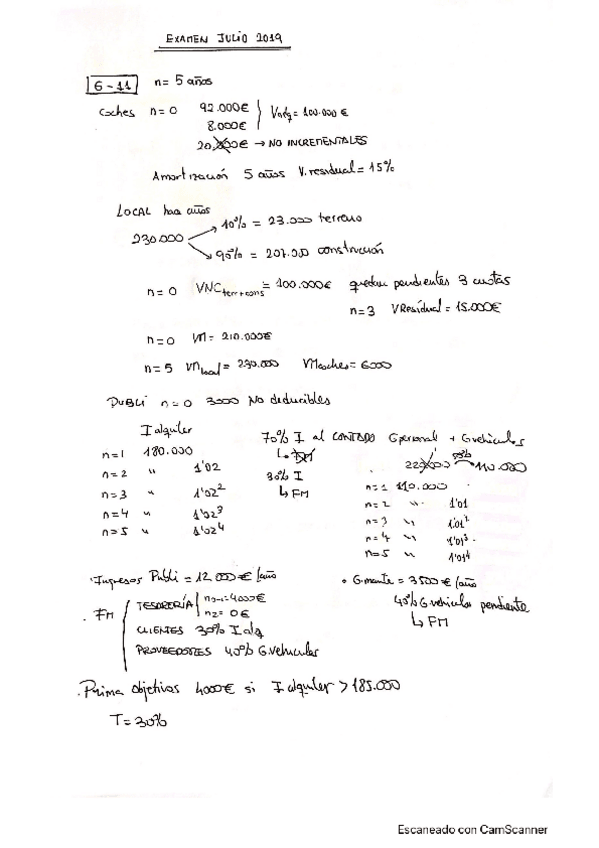 EXAMEN JULIO 2019
6-11 n= 5 años
Coches n=0 92.000€
8.000€
Vadq= 100.000 €
20.000€ → NO INCREMENTALES
Amortización 5 años V. residual = 15%
LOCAL hace años
230.000
10% = 23.000 terreno
90% = 207.000 construcción
n=0 VNC terr+cons = 100.000€ quedan pendientes 3 cuotas
n=3 VResidual = 15.000€
n=0 VM= 210.000€
n=5 VM local = 230.000 VMcoches= 6000
PUBLI n=0 3000 No deducibles
I alquiler
n=1 180.000
n=2 " 1'02
n=3 " 1'02²
n=4 " 1'02³
n=5 " 1'02⁴
70% I al CONTADO
30% I
↳ FM
G personal + G vehículos
110.000
n=1 110.000
n=2 " 1'01
n=3 " 1'01²
n=4 " 1'01³
n=5 " 1'01⁴
· Ingresos Publi = 12.000€/año
· G mante = 3500€/año
40% G vehículos pendiente
↳ FM
. FM
TESORERÍA n0-1=4000€
n2= 0€
CLIENTES 30% I alq
PROVEEDORES 40% G.vehículos
· Prima objetivos 4000€ si I alquiler > 185.000
T= 30%
Escaneado con CamScanner